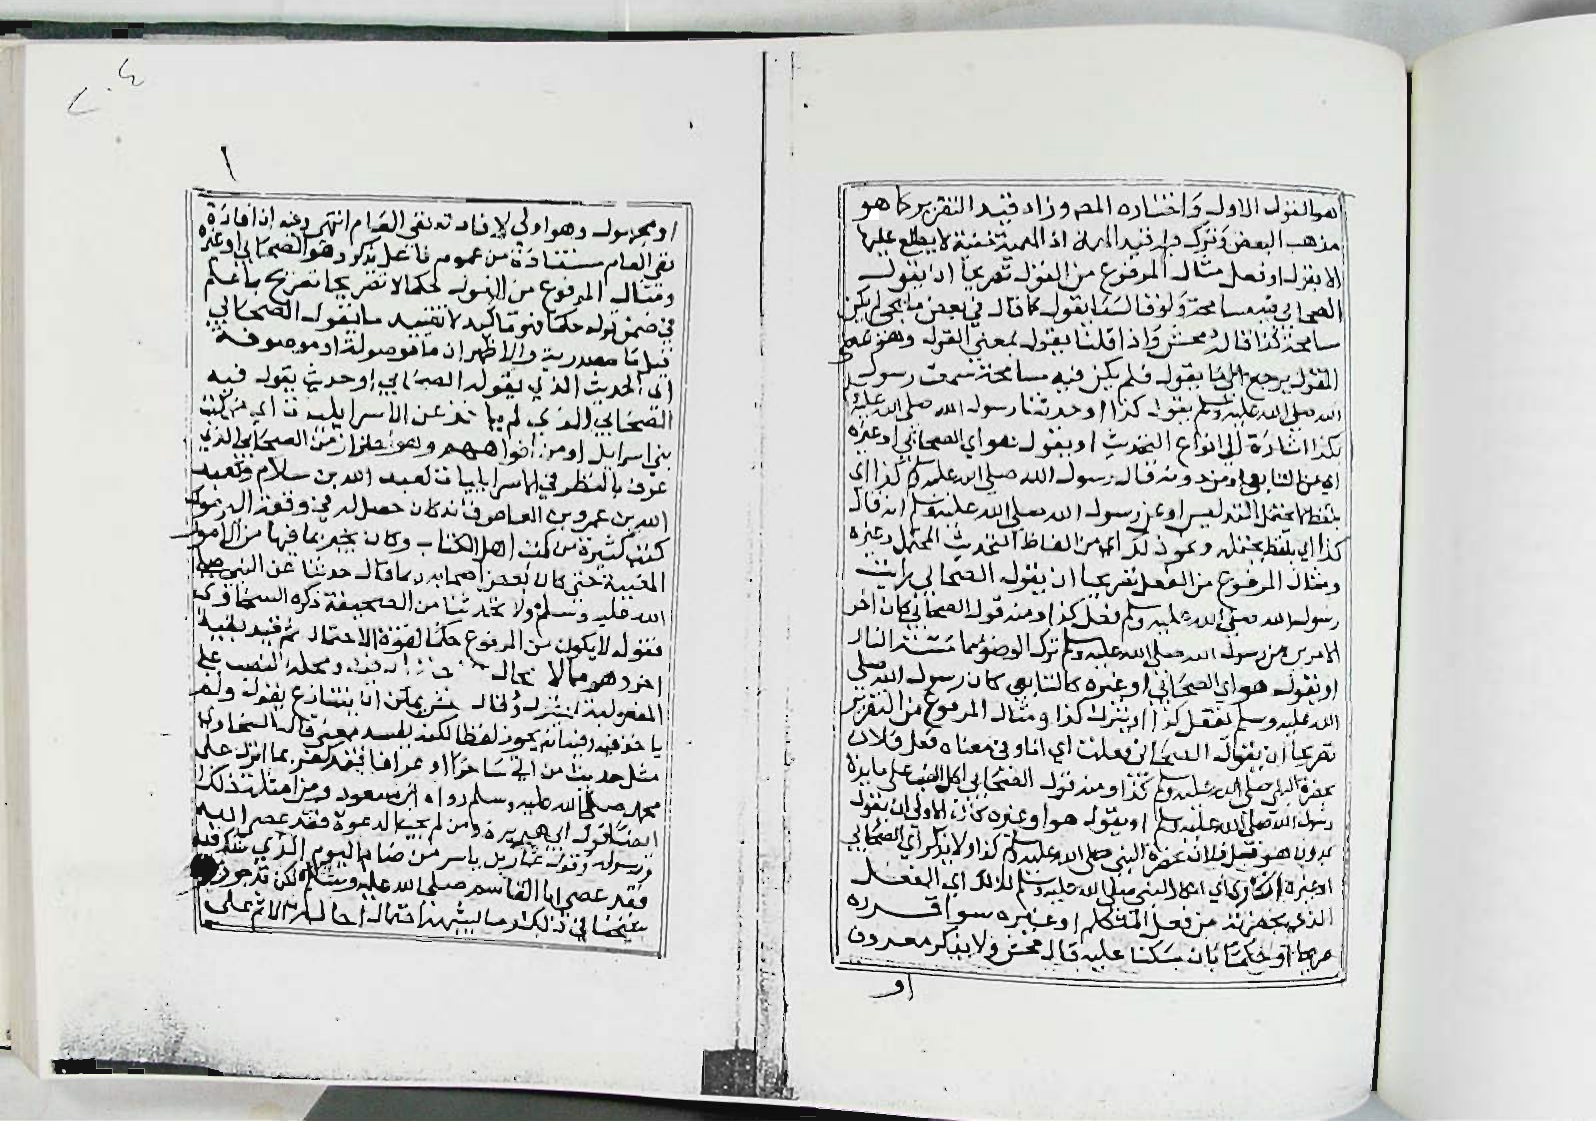 هو القول الاول واختاره المص وزاد قيد التقرير كما هو
مذهب البعض وترك فيه قيد الهمة اذ الهمة خفية لا يطلع عليها
الا بقول او فعل مثال المرفوع من القول تصريحا ان يقول
الصحابي فيه مسامحة ولو قال سما يقول كما قال في بعض ما يجي لم يكن
مسامحة كذا قال محش واذا قلنا يقول بمعنى القول وهو بمعنى
المقول يرجع الى ما يقول فلم يكن فيه مسامحة سمعت رسول
الله صلى الله عليه وسلم يقول كذا او حدثنا رسول الله صلى الله عليه
بكذا اشارة الى انواع التحديث او يقول هو اي الصحابي او غيره
اي من التابعي او من دونه قال رسول الله صلى الله عليه وسلم كذا اي
بلفظ او عن رسول الله صلى الله عليه وسلم انه قال
كذا اي بلفظ يحتمله ونحو ذلك اي من الفاظ التحديث المحتمل وغيره
ومثال المرفوع من الفعل تصريحا ان يقول الصحابي رايت
رسول الله صلى الله عليه وسلم فعل كذا ومنه قول الصحابي كان اخر
الامرين من رسول الله صلى الله عليه وسلم ترك الوضوء مما مسته النار
او يقول هو اي الصحابي او غيره كالتابعي كان رسول الله صلى
الله عليه وسلم يفعل كذا او يترك كذا ومثال المرفوع من التقرير
تصريحا ان يقول الصحابي فعلت اي انا وفي معناه فعل فلان
بحضرة النبي صلى الله عليه وسلم كذا ومنه قول الصحابي اكل الضب على مايدة
رسول الله صلى الله عليه وسلم او يقول هو او غيره الاولى ان يقول
بدون هو فعل فلان بحضرة النبي صلى الله عليه وسلم كذا ولا يذكر اي الصحابي
او غيره انكاره اي انكار النبي صلى الله عليه وسلم لذلك اي الفعل
الذي بحضرته من فعل المتكلم او غيره سوا اقرره
صريحا او حكما بان سكت عليه قال محش ولا يذكر معروف
او
او مجهول وهو اولى لافادته نفي العام انتهى وفيه ان افادة
نفي العام مستفادة من عموم فاعل يذكر وهو الصحابي او غيره
ومثال المرفوع من القول حكما لا تصريحا تصريح بما علم
في ضمن قوله حكما فهو تاكيد لا تقييد ما يقول الصحابي
قيل ما مصدرية والاظهر ان ما موصولة او موصوفة
اي الحديث الذي يقوله الصحابي او حديث يقول فيه
الصحابي الذي لم ياخذ عن الاسرايليات اي من كتب
بني اسرايل او من افواههم وهو احتراز من الصحابي الذي
عرف بالنظر في الاسرايليات كعبد الله بن سلام وكعبد
الله بن عمرو بن العاص فانه كان حصل له في وقعة اليرموك
كتب كثيرة من كتب اهل الكتاب وكان يخبر بما فيها من الامور
المغيبة حتى كان بعض اصحابه ربما قال حدثنا عن النبي صلى
الله عليه وسلم ولا تحدثنا من الصحيفة ذكره السخاوي
فقوله لا يكون من المرفوع حكما لقوة الاحتمال ثم قيد بقيد
اخر وهو مما لا مجال ومحله النصب على
المفعولية قال محش يمكن ان يتنازع يقول ولم
ياخذ فيه انه يجوز لفظا لكنه يفسد معنى قال السخاوي
مثل حديث من اتى ساحرا او عرافا فقد كفر بما انزل على
محمد صلى الله عليه وسلم رواه ابن مسعود ومن امثلة ذلك
ايضا قول ابي هريرة ومن لم يجب الدعوة فقد عصى الله
ورسوله وقول عمار بن ياسر من صام اليوم الذي يشك فيه
فقد عصى ابا القاسم صلى الله عليه وسلم لكن قد جوز
شيخنا في ذلك وما يشبهه احتمال احالة الاثم على